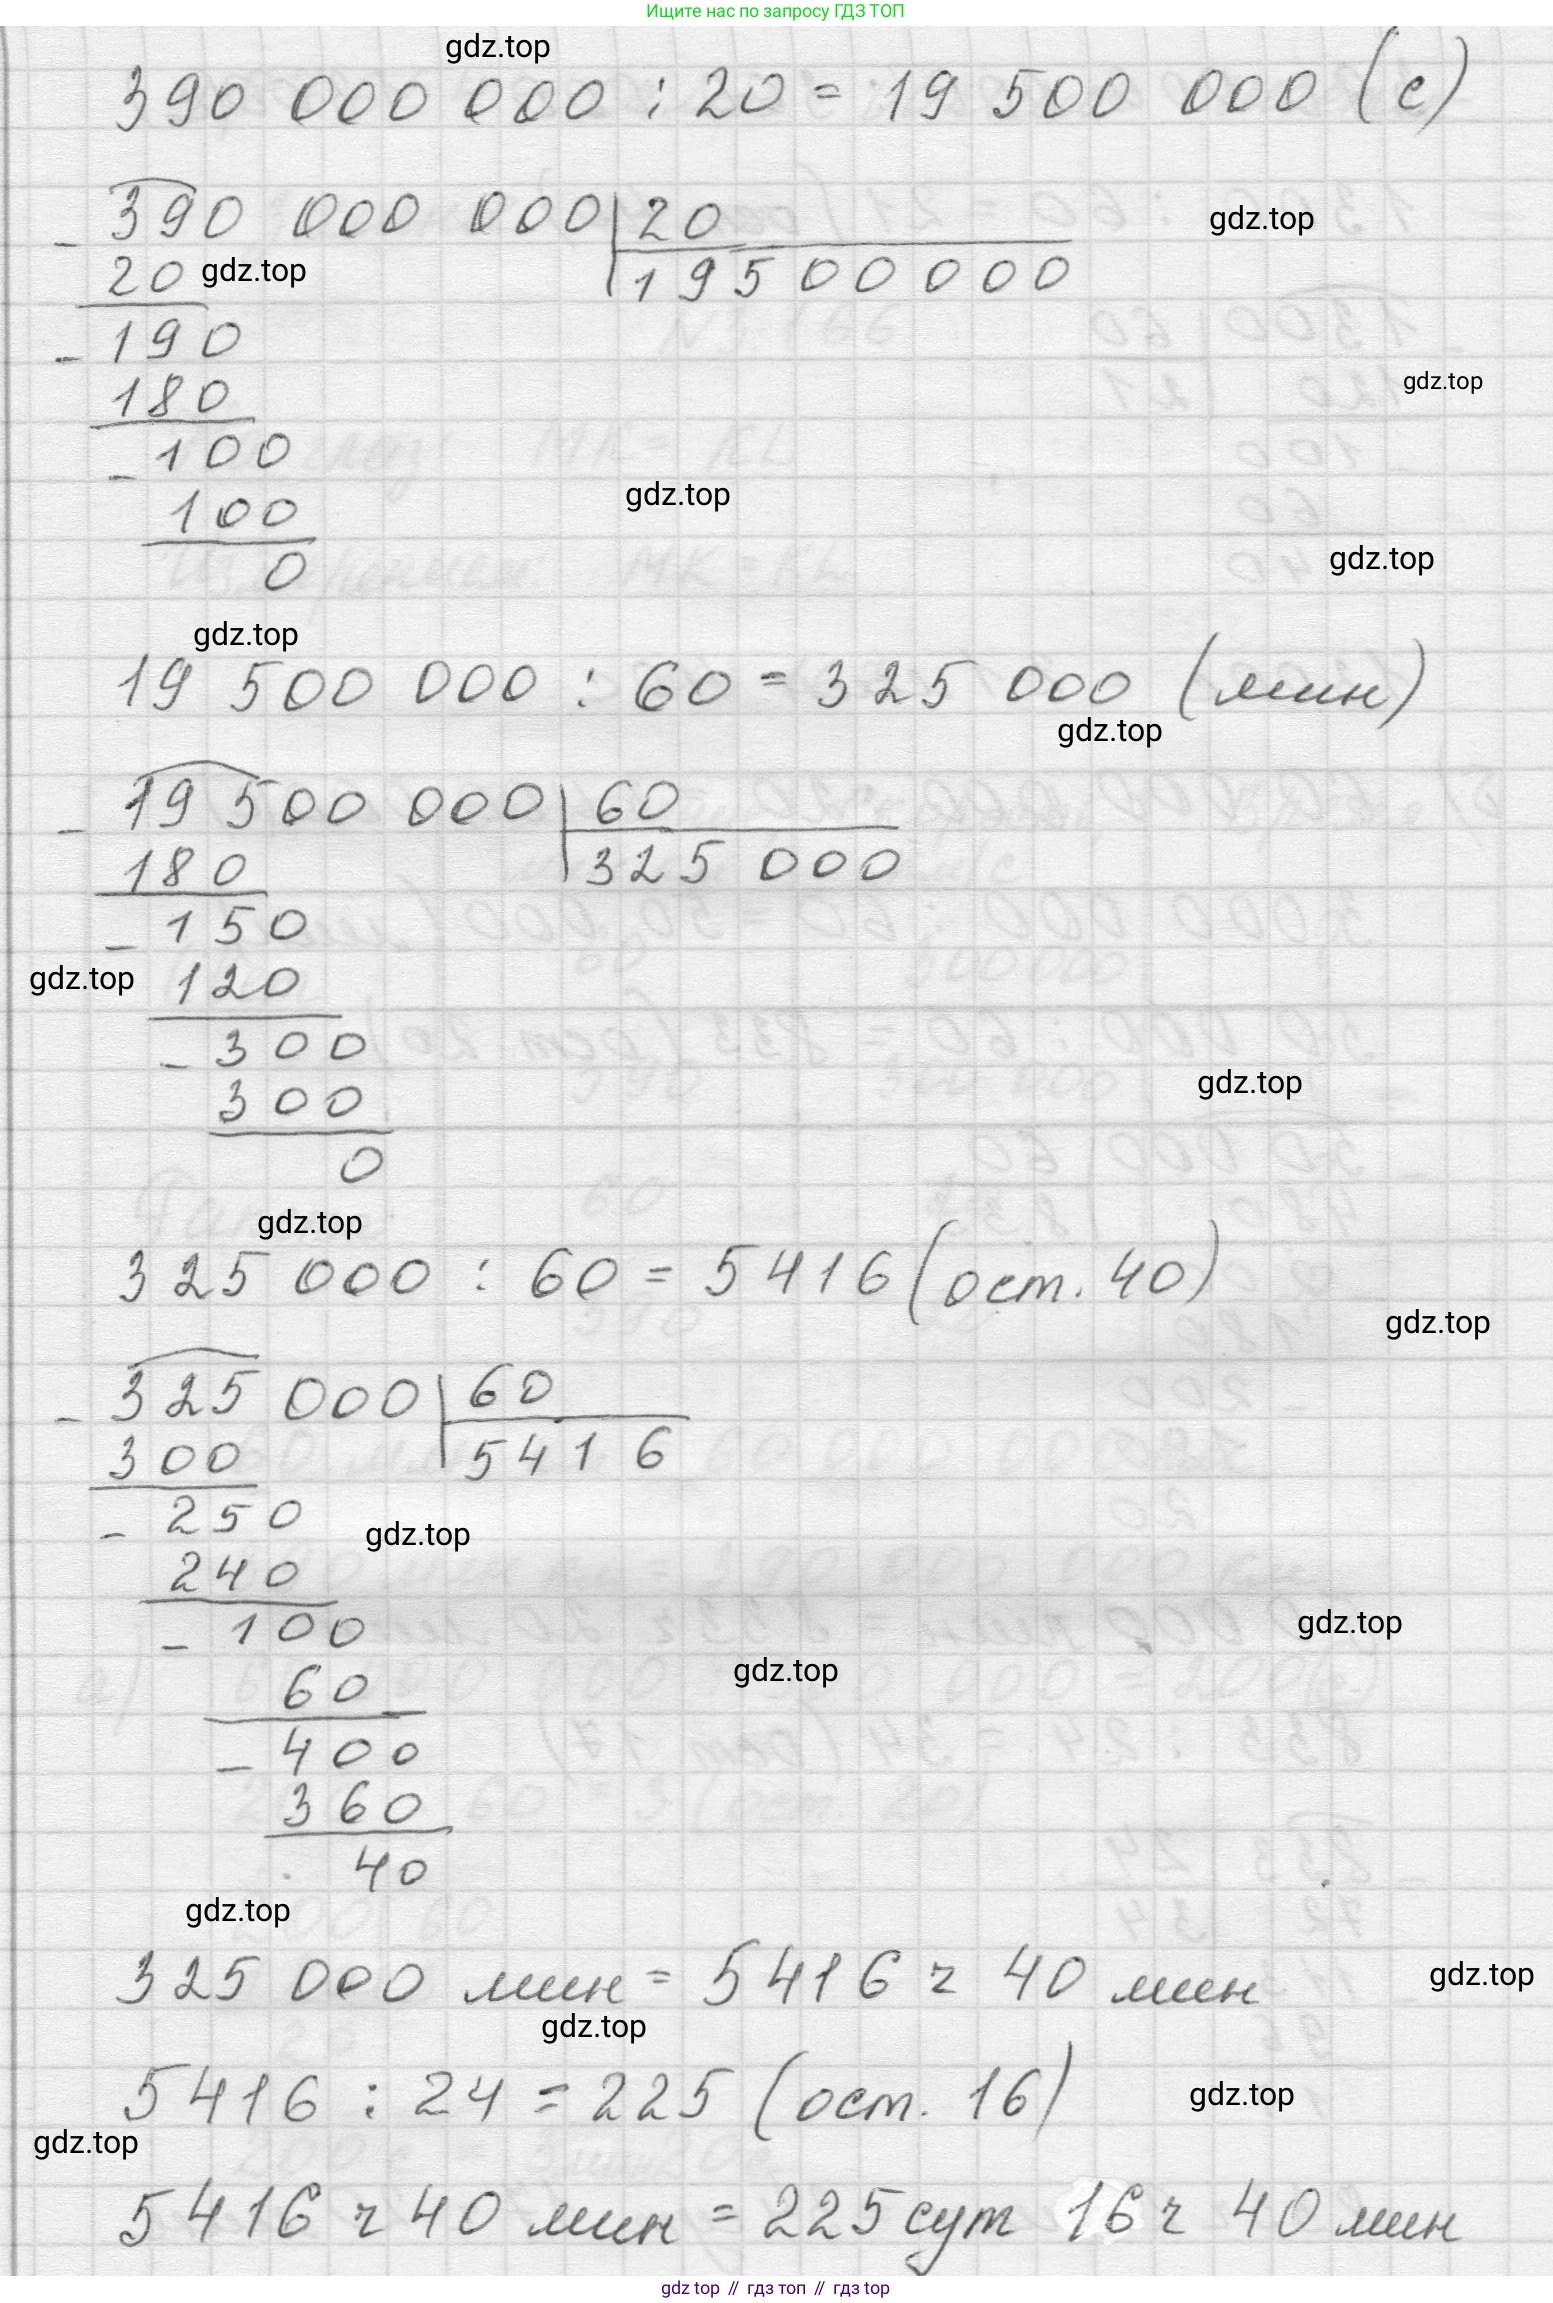 Ищите нас по запросу ГДЗ ТОП
gdz.top
390 000 000 : 20 = 19 500 000 (с)
390 000 000 | 20
gdz.top
- 20 gdz.top
19500000
- 190
180
gdz.top
- 100
gdz.top
100
gdz.top
0
gdz.top
19 500 000 : 60 = 325 000 (мин)
gdz.top
- 19 500 000 | 60
180
325 000
- 150
gdz.top
120
- 300
gdz.top
300
0
gdz.top
325 000 : 60 = 5416 (ост. 40)
gdz.top
- 325 000 | 60
300
5416
- 250
gdz.top
240
- 100
gdz.top
60
gdz.top
- 400
360
40
gdz.top
325 000 мин = 5416 ч 40 мин
gdz.top
gdz.top
5416 : 24 = 225 (ост. 16)
gdz.top
gdz.top
5416 ч 40 мин = 225 сут 16 ч 40 мин
gdz top // гдз топ // гдз top